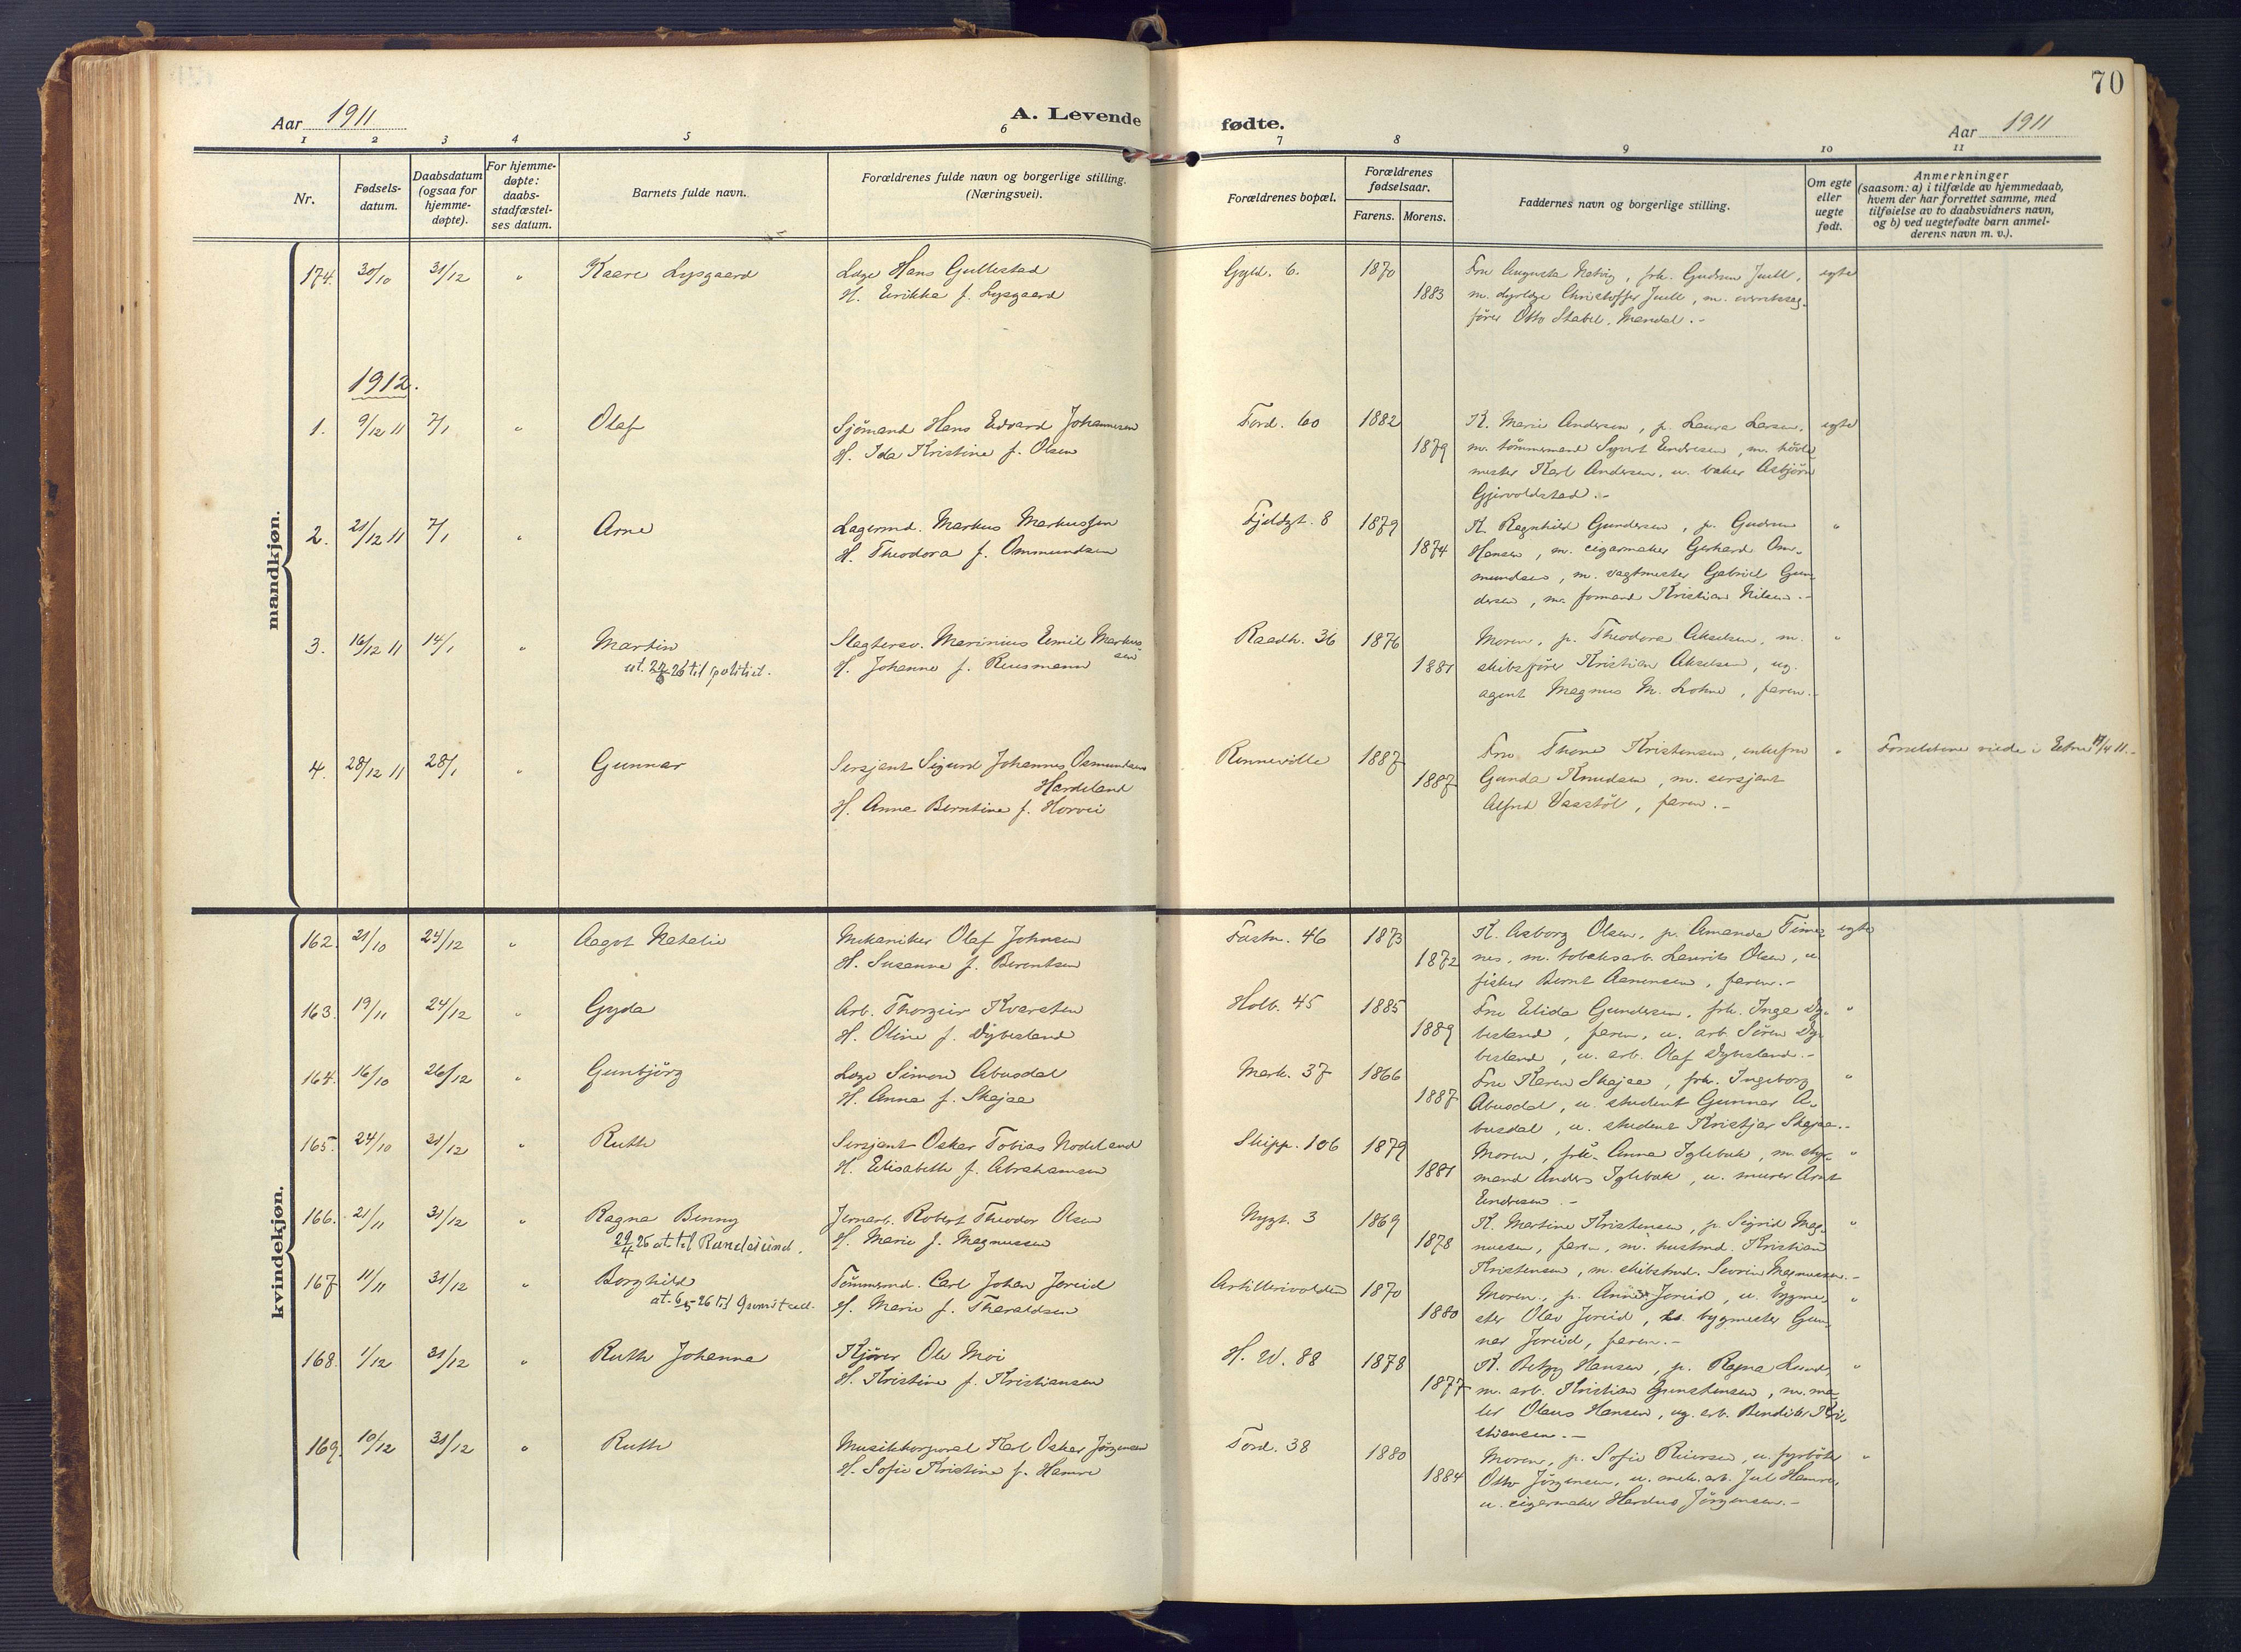 70
Aar 1911
A. Levende fødte.
Aar 1911
1 2 3 4 5 6 7 8 9 10 11
Nr.
Fødsels-
datum.
Daabsdatum
(ogsaa for
hjemme-
døpte).
For hjemme-
døpte:
daabs-
stadfæstel-
ses datum.
Barnets fulde navn.
Forældrenes fulde navn og borgerlige stilling.
(Næringsvei).
Forældrenes bopæl.
Forældrenes
fødselsaar.
Farens. Morens.
Faddernes navn og borgerlige stilling.
Om egte
eller
uegte
født.
Anmerkninger
(saasom: a) i tilfælde av hjemmedaab,
hvem der har forrettet samme, med
tilføielse av to daabsvidners navn,
og b) ved uegtefødte barn anmel-
derens navn m. v.).
mandkjøn.
174. 30/10 31/12 " Kaare Lysgaard
Læge Hans Gullestad
H. Eirikka f. Lysgaard
Gyld. 6. 1870
1883
Fru Augusta Natvig, frk. Gudrun Juell,
m. dyrlæge Christoffer Juell, m. overretssag-
fører Otto Stabel, Mandal.-
egte
1912.
1. 9/12 11 7/1 " Olaf
Sjömand Hans Edvard Johannesen
H. Ida Kristine f. Olsen
Tord. 60 1882
1879
K. Marie Andersen, p. Laura Larsen,
m. tömmermand Syvert Eindresen, m. hövle
mester Karl Andersen, u. baker Asbjörn
Gjervoldstad.-
egte
2. 21/12 11 7/1 " Arne
Lagermd. Markus Markussen
H. Theodora f. Ommundsen
Fjeldgt. 8 1879
1874
K. Ragnhild Gundersen, p. Gudrun
Hansen, m. cigarmaker Gerhard Om-
mundsen, m. vagtmester Gabriel Gun-
dersen, m. formand Kristian Nilsen.-
"
3. 16/12 11 14/1 " Martin
ut. 26 til politiet.
Slagtersv. Marinius Emil Markus
sen
H. Johanne f. Reusmann
Raadh. 36 1876
1881
Moren, p. Theodora Akselsen, m.
skibsförer Kristian Akselsen, ug.
agent Magnus M. Lohne, faren.-
"
4. 28/12 11 28/1 " Gunnar
Sersjant Sigurd Johannes Osmundsen
Hardeland
H. Anna Berntine f. Horvei
Renneville 1887
1887
Fru Thone Kristensen, enkefru
Gunda Knudsen, m. sersjant
Alfred Vaastöl, faren.-
"
Forældrene viede i Etne 17/4 11.-
kvindekjøn.
162. 21/10 24/12 " Aagot Natalie
Mekaniker Olaf Johnsen
H. Susanne f. Berentsen
Fæstn. 46 1873
1872
K. Asborg Olsen, p. Amanda Timer
nes, m. tobaksarb. Laurits Olsen, u.
fisker Bernt Aanensen, faren.-
egte
163. 19/11 24/12 " Gyda
Arb. Thorgeir Kvarsten
H. Oline f. Dybesland
Holb. 45 1885
1889
Fru Elida Gundersen, frk. Inga Dy-
besland, faren, u. arb. Sören Dy-
besland, u. arb. Olaf Dybesland.-
"
164. 16/10 26/12 " Gunbjörg
Læge Simon Abusdal
H. Anna f. Skajaa
Mark. 37 1866
1887
Fru Karen Skajaa, frk. Ingeborg
Abusdal, u. student Gunnar A-
busdal, u. student Kristjar Skajaa.-
"
165. 24/10 31/12 " Ruth
Sersjant Oskar Tobias Nodeland
H. Elisabeth f. Abrahamsen
Skipp. 106 1879
1881
Moren, frk. Anna Iglebæk, m. styr-
mand Anders Iglebæk, u. murer Arnt
Eindresen.-
"
166. 21/11 31/12 " Ragna Benny
29/4 26 at. til Randesund.
Jernarb. Robert Theodor Olsen
H. Marie f. Magnussen
Nygt. 3 1869
1878
K. Martine Kristensen, p. Sigrid Mag-
nussen, faren, m. husmd. Kristian
Kristensen, m. skibstmd. Severin Magnussen.-
"
167 11/11 31/12 " Borghild
at. 6/5-26 til Grimstad.
Tömmermd. Carl Johan Joreid
H. Marie f. Tharaldsen
Artillerivolden 1870
1880
Moren, p. Anna Joreid, u. bygme-
ster Olav Joreid, u. bygmester Gun-
nar Joreid, faren.-
"
168. 1/12 31/12 " Ruth Johanna
Kjörer Ole Moi
H. Kristine f. Kristiansen
H. W. 88 1878
1877
K. Betzy Hansen, p. Ragna Lund,
m. arb. Kristian Gunstensen, m. ma-
ler Olaus Hansen, ug. arb. Bendikt Kri-
stiansen.-
"
169. 10/12 31/12 " Ruth
Musikkorporal Karl Oskar Jörgensen
H. Sofie Kristine f. Hamre
Tord. 38 1880
1884
Moren, p. Sofie Reiersen, u. fyrböter
Otto Jörgensen, u. mek. arb. Jul Hamre,
u. cigarmaker Jörgensen.-
"